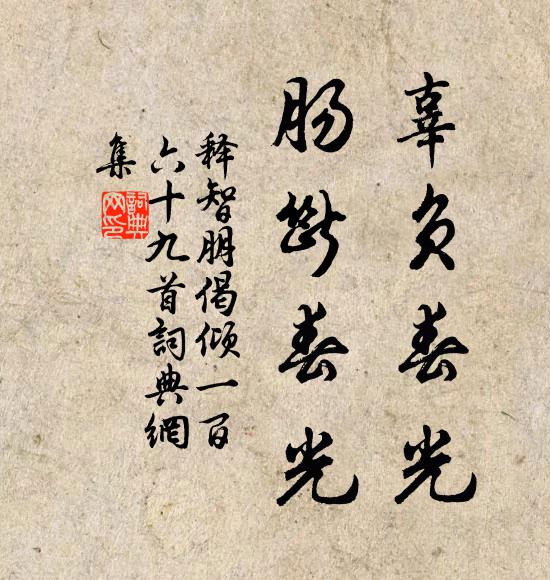 辜负春光
肠断春光
释智朋偈倾一百
六十九首詞典網
集
詞典
网印